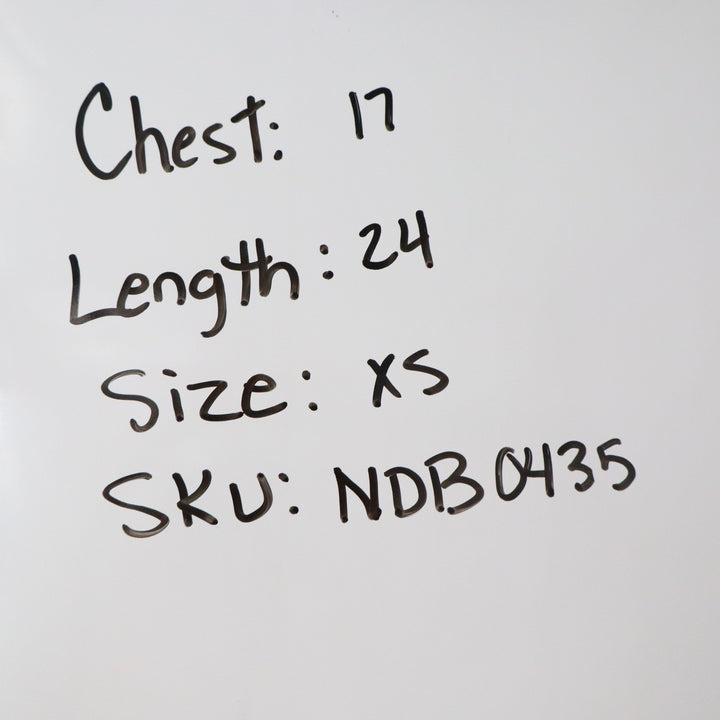 Chest: 17
Length: 24
Size: XS
SKU: NDB0435